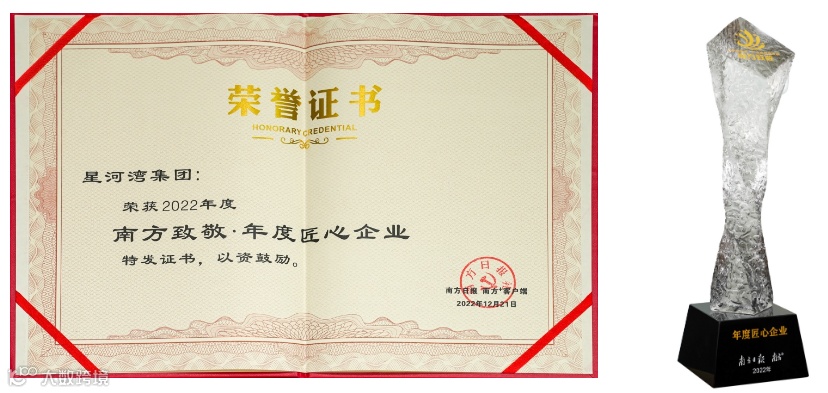 荣誉证书
HONORARY CREDENTIAL
星河湾集团：
荣获2022年度
南方致敬·年度匠心企业
特发证书，以资鼓励。
南方日报 南方+客户端
2022年12月21日
年度匠心企业
南方日报 南方+
2022年
大数跨境